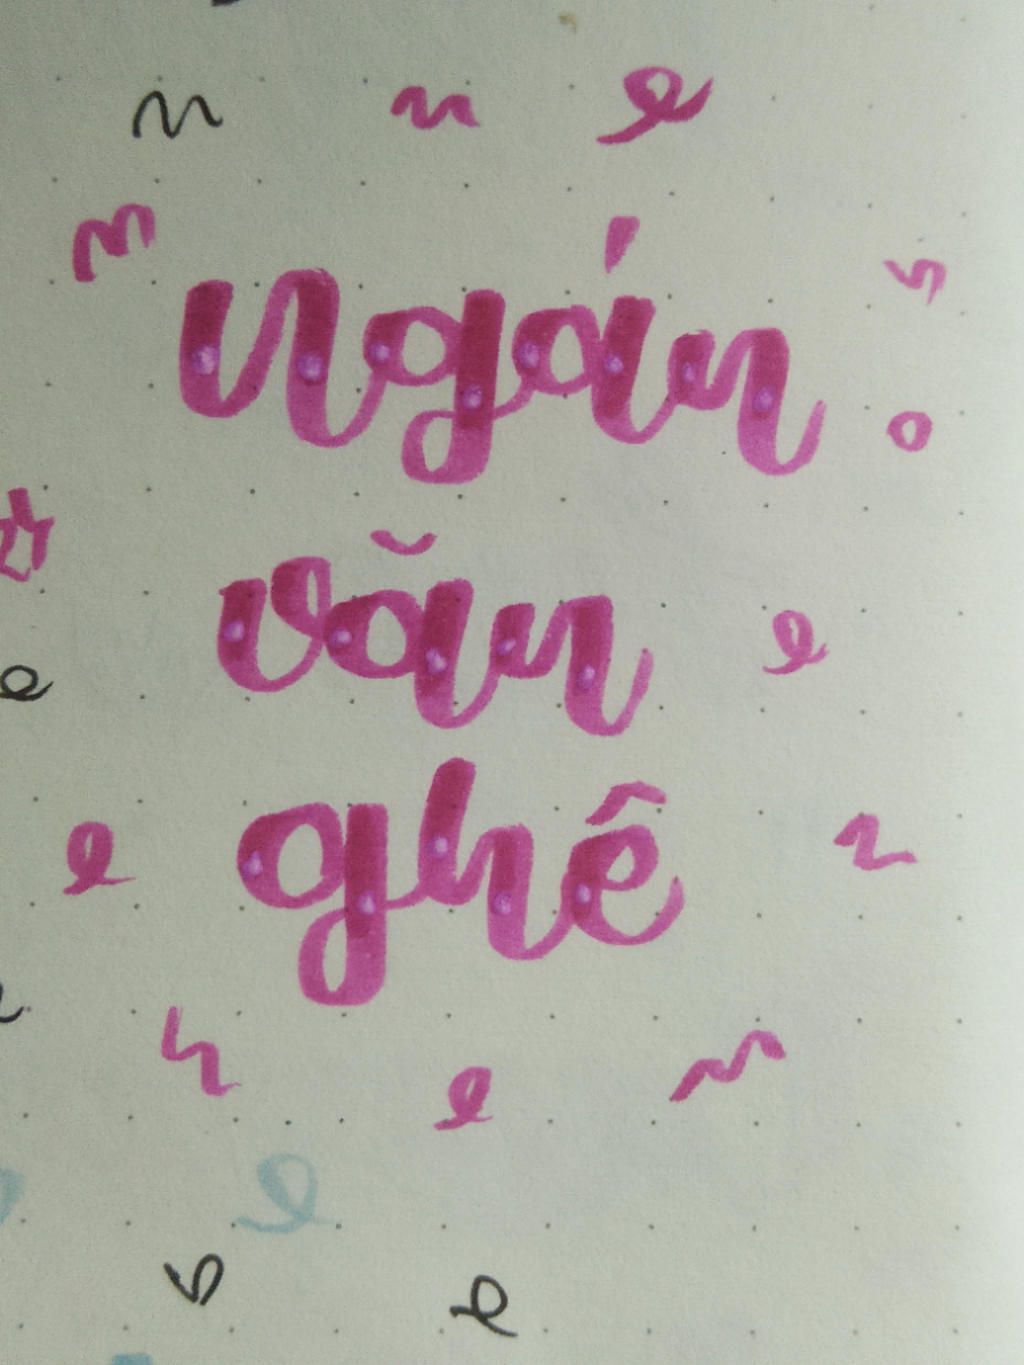 Ngán
văn
ghê